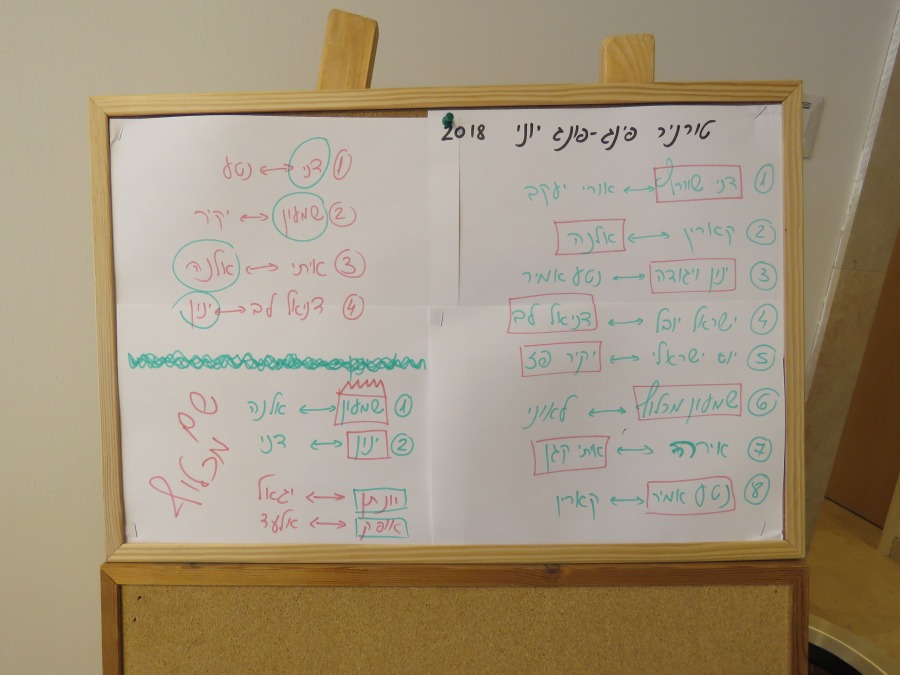 טורניר פינג-פונג יוני 2018
① דני שוורץ ↔ אורי יעקב
② קארין ↔ אלנה
③ ינון ויגודה ↔ נטע אמיר
④ ישראל יובל ↔ דניאל לב
⑤ יוס ישראלי ↔ יקיר פז
⑥ שמעון מכלוף ↔ לאיני
⑦ ↔ איתי קגן
⑧ נטע אמיר ↔ קארין
① דני ↔ נטע
② שמעון ↔ יקיר
③ איתי ↔ אלנה
④ דניאל לב ↔ ינון
① שמעון ↔ אלנה
② ינון ↔ דני
יונתן ↔ יגאל
אופק ↔ אלעד
שם
מכלוף